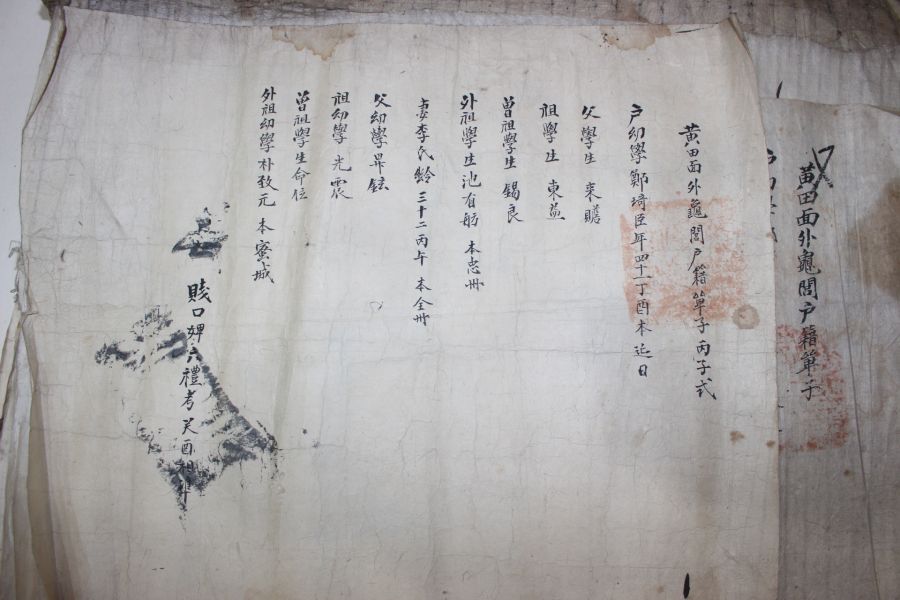 黃田面外龜閭戶籍單子丙子式
戶幼學鄭埼臣年四十丁酉本延日
父學生 來贍
祖學生 東益
曾祖學生 錫良
外祖學生池有舫 本忠州
妻李氏齡三十二丙午 本全州
父幼學昇鉉
祖幼學 光震
曾祖學生命位
外祖幼學朴致元 本蜜城
賤口婢六禮考癸酉相準
黃田面外龜閭戶籍單子